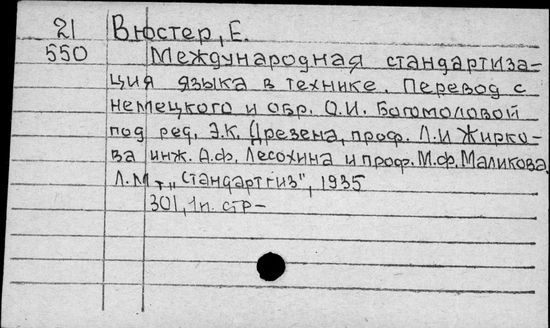 21 Вюстер, Е.
550 Международная стандартиза-
ция языка в технике. Перевод с
немецкого и обр. О.И. Богомоловой
под ред. Э.К. Дрезена, проф. Л.И Жирко-
ва инж. А.Ф. Лесохина и проф. М.Ф. Маликова.
Л. М., „Стандартгиз", 1935
301, 1п. стр-